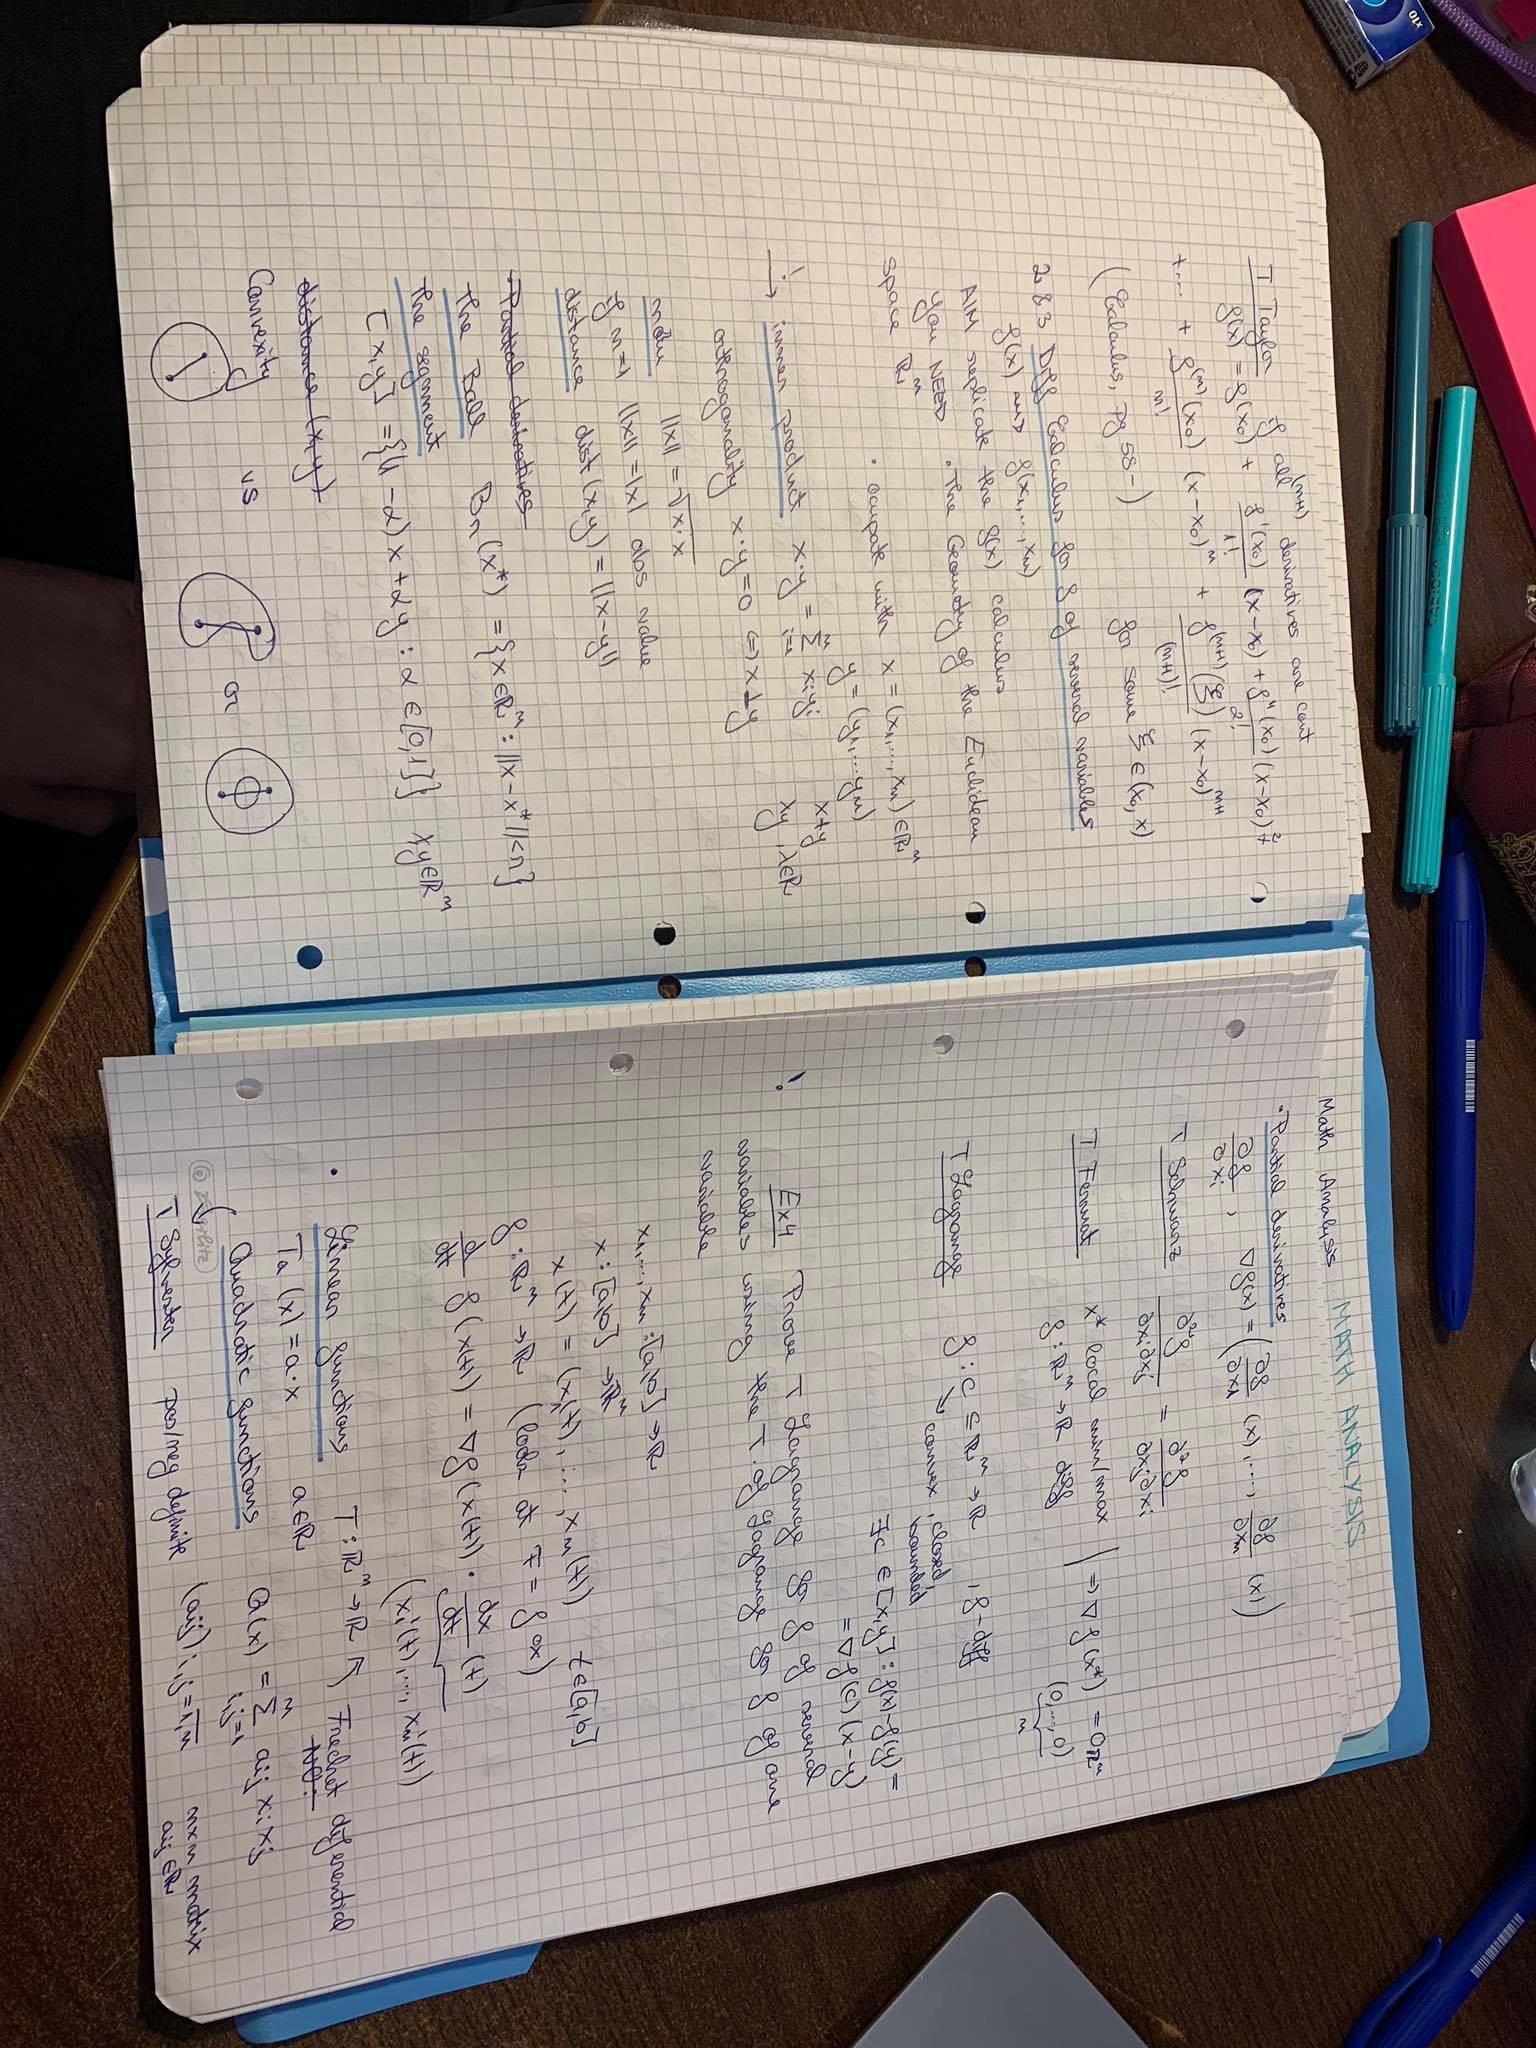 x10
T Taylor if all (n+1) derivatives are cont
f(x) = f(x0) + f'(x0)/1! (x-x0) + f''(x0)/2! (x-x0)^2 +
+... + f^(n)(x0)/n! (x-x0)^n + f^(n+1)(ξ)/(n+1)! (x-x0)^n+1
(Calculus, pg 58-) for some ξ ∈ (x0, x)
2 & 3 Diff Calculus for f of several variables
f(x) f(x1,...,xn)
AIM replicate the f(x) calculus
you NEED • The Geometry of the Euclidean
space ℝ^n
• ocupate with x = (x1,...,xn) ∈ ℝ^n
y = (y1,...yn)
! → inner product x·y = Σ_{i=1}^n xi yi x+y
λy, λ∈ℝ
orthogonality x·y=0 ⇔ x⊥y
||x|| = √x·x
if n=1 ||x|| = |x| abs value
distance dist(x,y) = ||x-y||
Partial derivatives
The Ball Br(x*) = {x∈ℝ^n : ||x-x*||<r}
The segment
[x,y] = {(1-α)x+αy : α∈[0,1]} x,y∈ℝ^n
distance (x,y)
Convexity vs or
MATH ANALYSIS
Math Analysis
• Partial derivatives
∂f/∂xi , ∇f(x) = (∂f/∂x1 (x),..., ∂f/∂xn (x))
T Schwarz ∂²f/∂xi∂xj = ∂²f/∂xj∂xi
T Fermat x* local min/max | ⇒ ∇f(x*) = 0ℝ^n
f : ℝ^n → ℝ diff (0,...,0)
n
T Lagrange f : C ⊆ ℝ^n → ℝ , f-diff
↘ convex, closed,
bounded
∃c ∈ [x,y] : f(x)-f(y) =
= ∇f(c)(x-y)
! Ex4 Prove T Lagrange for f of several
variables using the T. of Lagrange for f of one
variable
x1,...,xn : [a,b] → ℝ
x : [a,b] → ℝ^n
x(t) = (x1(t),...,xn(t)) t∈[a,b]
f : ℝ^n → ℝ (look at F = f∘x)
d/dt f(x(t)) = ∇f(x(t)) · dx/dt (t)
(x1'(t),...,xn'(t))
• Linear functions T : ℝ^n → ℝ ↖ Frechet diferential
Ta(x) = a·x a∈ℝ
Quadratic functions Q(x) = Σ_{i,j=1}^n aij xi xj
T Sylvester pos/neg definite (aij) i,j=1,n nxn matrix
aij∈ℝ